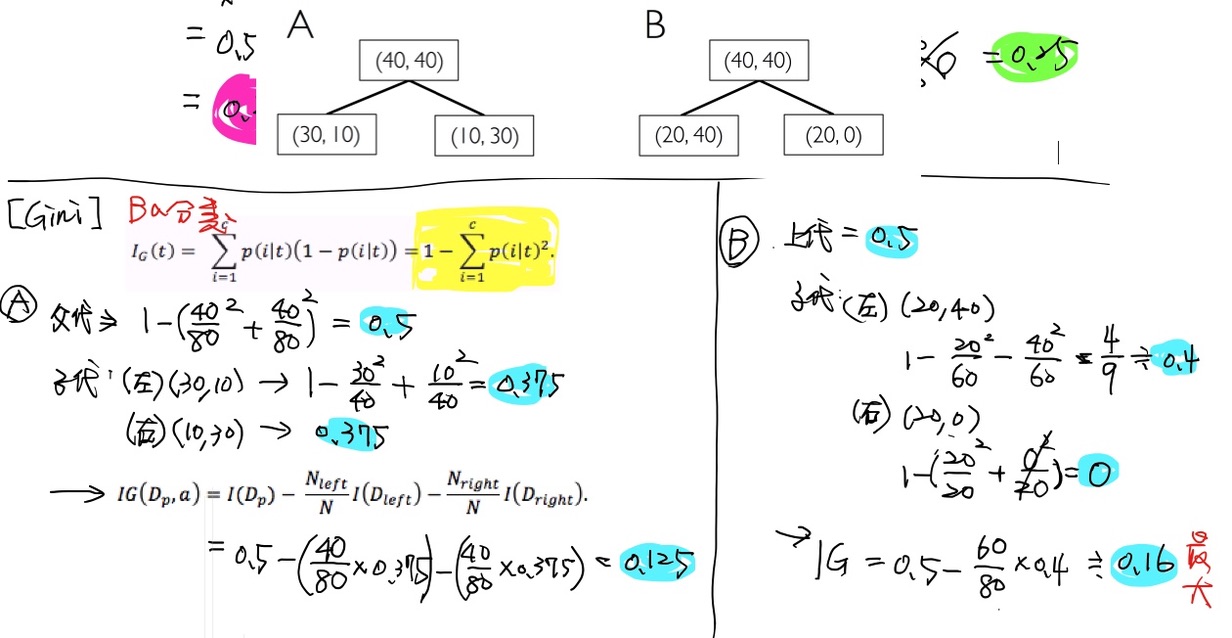 = 0.5
= 0.
A
(40, 40)
(30, 10)
(10, 30)
B
(40, 40)
(20, 40)
(20, 0)
= 0.25
[Gini] Bの分類
I_G(t) = ∑_{i=1}^{c} p(i|t)(1 − p(i|t)) = 1 − ∑_{i=1}^{c} p(i|t)².
Ⓐ 父代⇒ 1-(40/80² + 40/80²) = 0.5
子代: (左)(30,10) → 1 - 30²/40 + 10²/40 = 0.375
(右)(10,30) → 0.375
→ IG(D_p, a) = I(D_p) − N_left/N I(D_left) − N_right/N I(D_right).
= 0.5 - (40/80 × 0.375) - (40/80 × 0.375) = 0.125
Ⓑ. 上代 = 0.5
子代: (左) (20,40)
1 - 20²/60 - 40²/60 = 4/9 ≒ 0.4
(右) (20,0)
1-(20²/20 + 0²/20) = 0
→ IG = 0.5 - 60/80 × 0.4 ≒ 0.16 最大